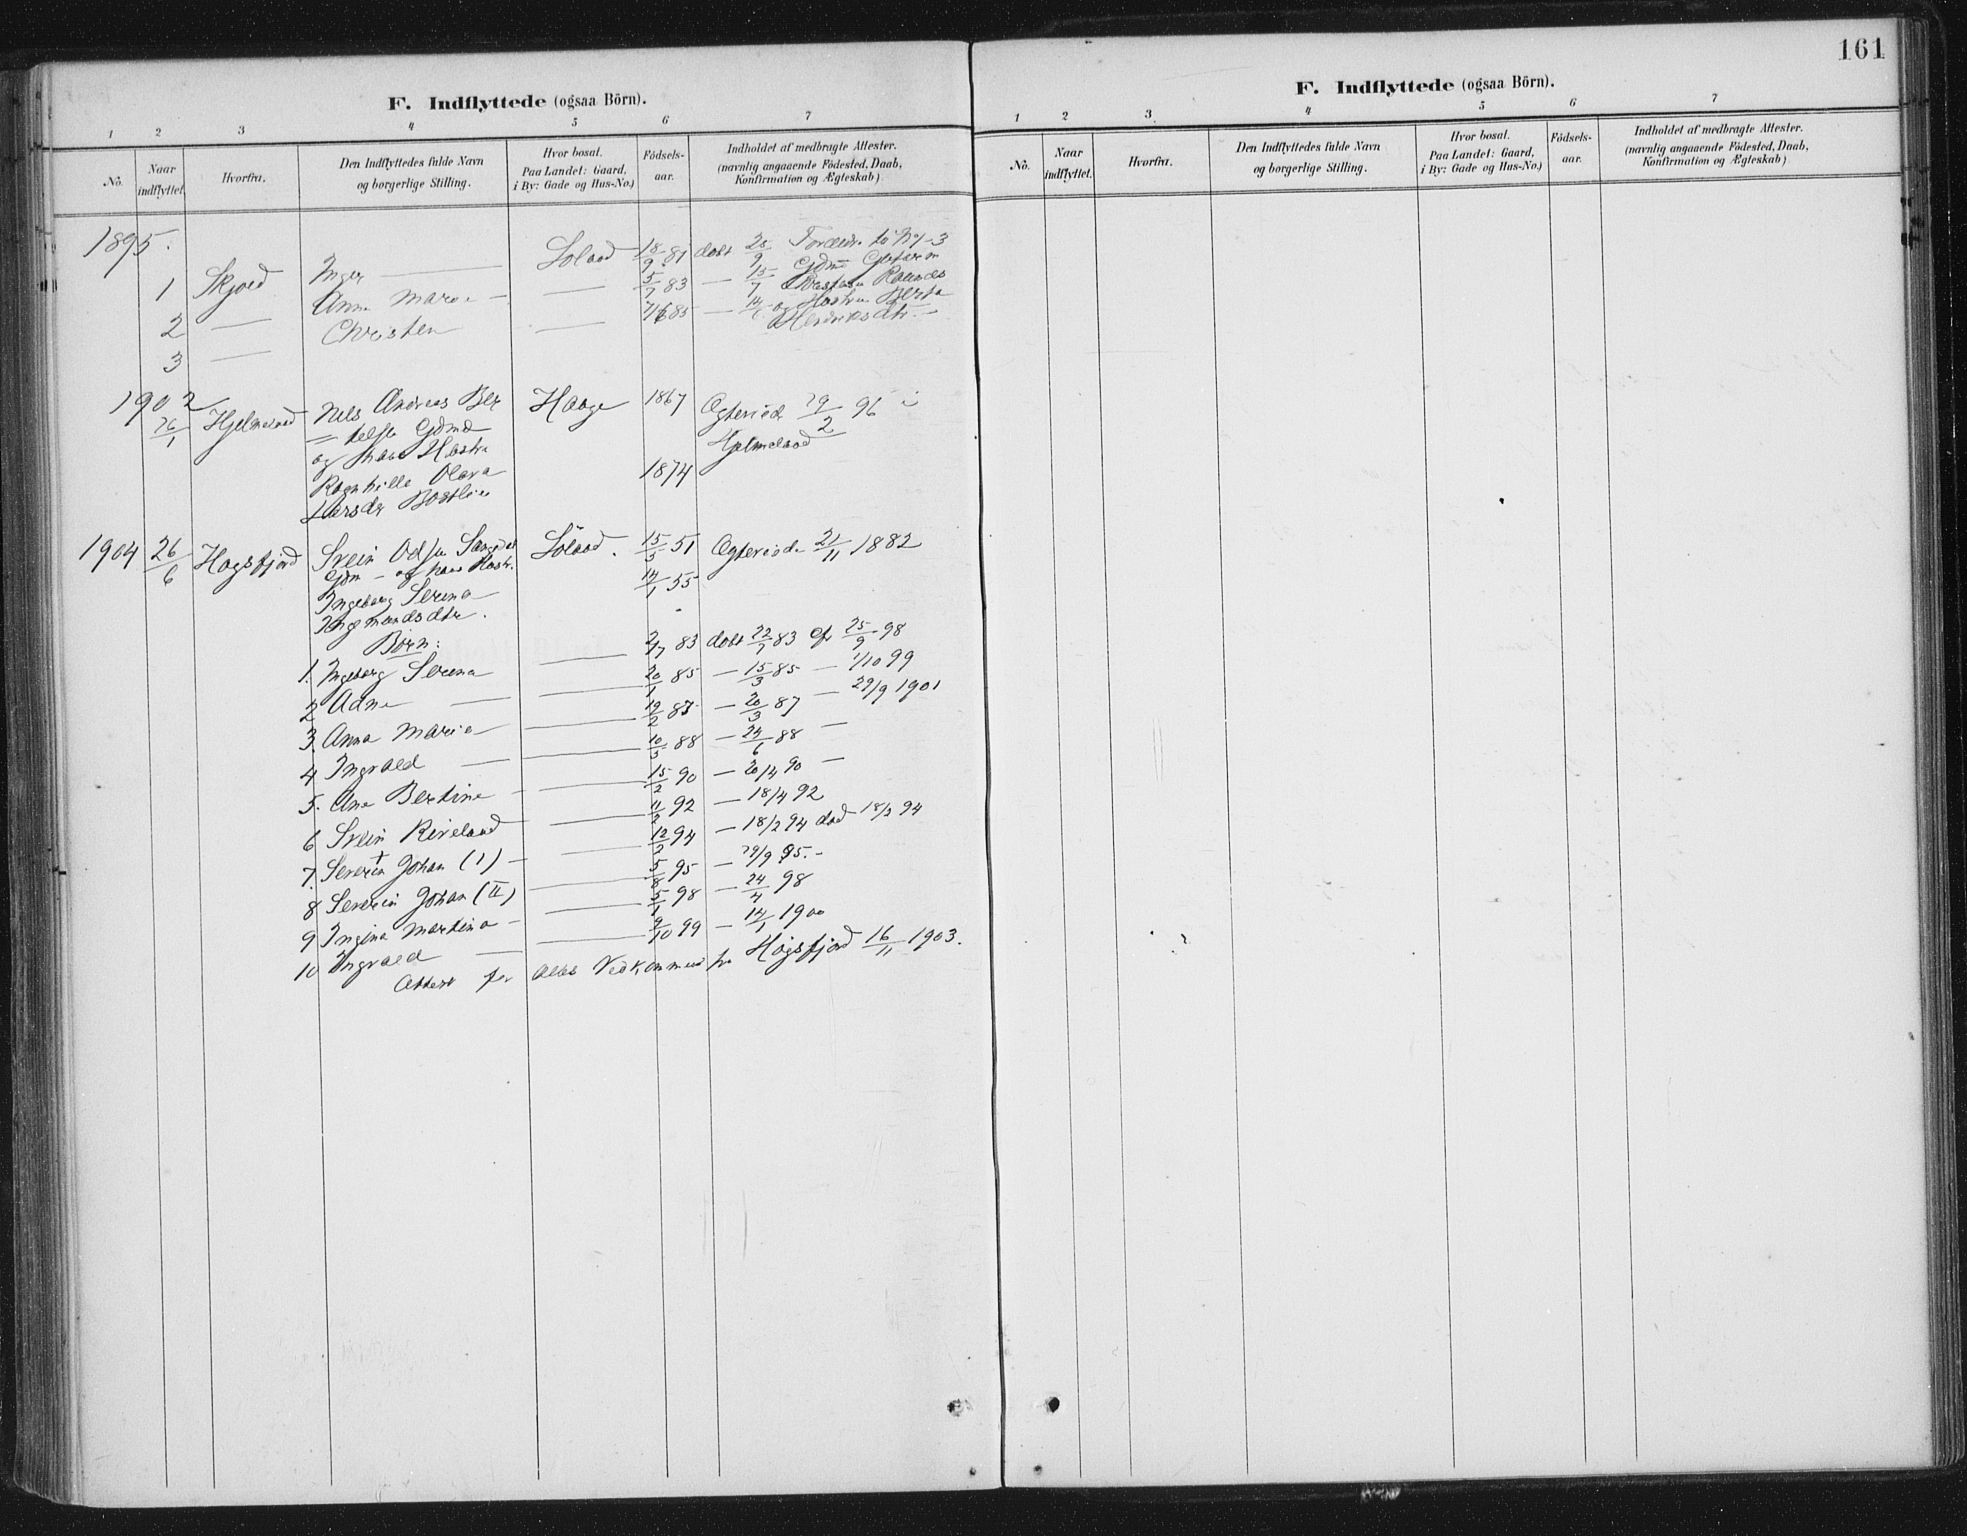 161
F. Indflyttede (ogsaa Börn).
1 2 3 4 5 6 7
No. Naar indflyttet. Hvorfra. Den Indflyttedes fulde Navn og borgerlige Stilling. Hvor bosat. Paa Landet: Gaard, i By: Gade og Hus-No.) Födsels-aar. Indholdet af medbragte Attester. (navnlig angaaende Födested, Daab, Konfirmation og Ægteskab)
1895.
1 Skjold Inger — Løland 18/9 81 døbt 20/9 Foreldr. til No 1-3
2 — Anna Maria — — 5/7 83 — 15/7 Gdmd
3 — Christen — 85 — 14/ og Hustru Berta
Henriksdtr.
1902
26/1 Hjelmeland Nels Andreas Ber Haage 1867 Ægteviede 29/2 96 i
telsen Gdmd Hjelmeland
og hans Hustru
Ragnhilde Olava 1874
1904 26/6 Høgsfjord Svein Løland. 15/5 51 Ægteviede 21/11 1882
Gdm — og hans Hustr. 14/1 55
Ingeborg Serina
Ingemundsdtr.
Børn:
1. Ingeborg Serina — 2/7 83 døbt 22/7 83 cf 25/9 98
2 Adne — — 20/1 85 — 15/3 85 — 1/10 99
3. Anna Maria — 12/2 87 — 20/3 87 — 29/9 1901
4 Ingvald — — 10/5 88 — 24/6 88 —
5. Ane Bertine — — 15/2 90 — 20/4 90 —
6 Svein Riveland — 11/2 92 — 18/4 92
7. Severin Johan (I) — — 12/2 94 — 18/2 94 død 18/2 94
8 Severin Johan (II) — 5/8 95 — 29/9 95. -
9 Ingina Martina — — 5/1 98 — 24/4 98
10 Ingvald — — 9/10 99 — 14/1 1900
Attest for alles Vedkommend fra Høgsfjord 16/11 1903.
F. Indflyttede (ogsaa Börn).
1 2 3 4 5 6 7
No. Naar indflyttet. Hvorfra. Den Indflyttedes fulde Navn og borgerlige Stilling. Hvor bosat. Paa Landet: Gaard, i By: Gade og Hus-No.) Födsels-aar. Indholdet af medbragte Attester. (navnlig angaaende Födested, Daab, Konfirmation og Ægteskab)